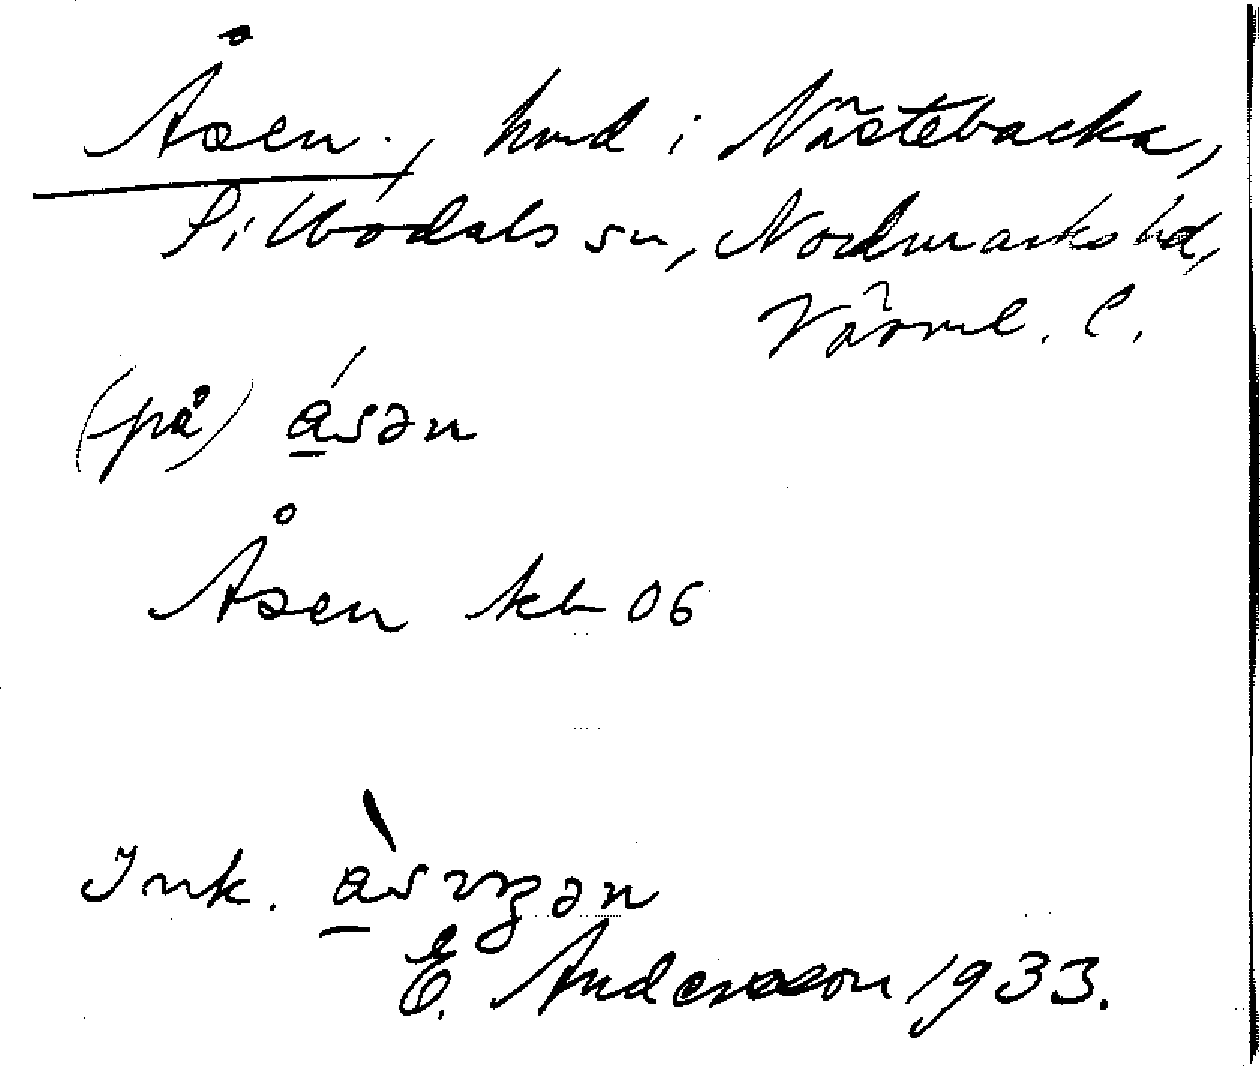 Åsen., hmd i Nästebacka,
Silbodals sn, Nordmarks hd,
Värml. l.
(på) á̠sən
Åsen kb 06
Ink. à̠sıŋən
E. Andersson 1933.